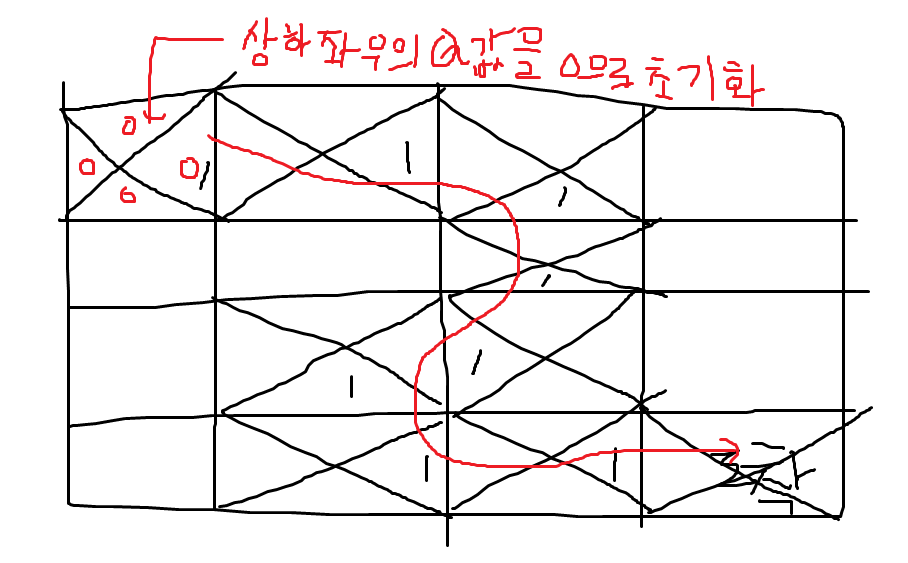 상하좌우의 Q값을 0으로 초기화
0
0 0 1
0
1
1
1
1
1
1
1